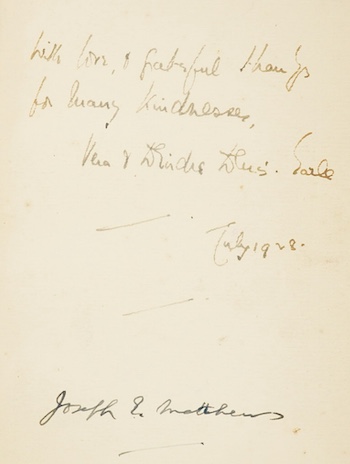 with love, & grateful thanks
for many kindnesses,
Vera &
July 1928.
Joseph E. Matthews